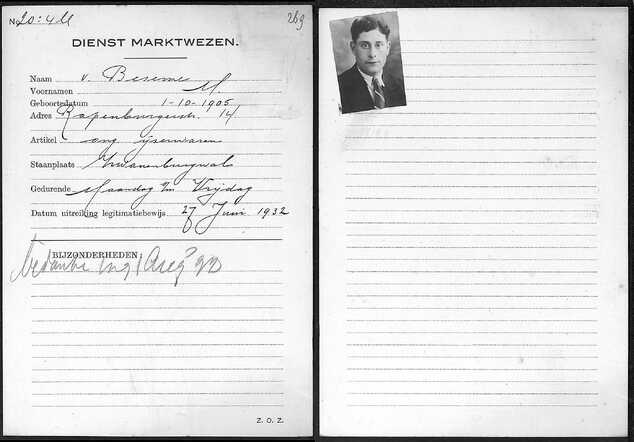 No 20:4M 269
DIENST MARKTWEZEN.
Naam v. Beseme
Voornamen M.
Geboortedatum 1-10-1905
Adres Rapenburgerstr. 14
Artikel ong ijserwaren
Staanplaats Zwanenburgwal
Gedurende Maandag t/m Vrijdag
Datum uitreiking legitimatiebewijs 27 Juni 1932
BIJZONDERHEDEN
Z. O. Z.